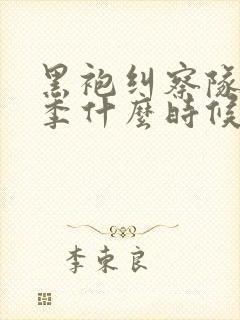 黑袍纠察隊
季什麼時候
李東良